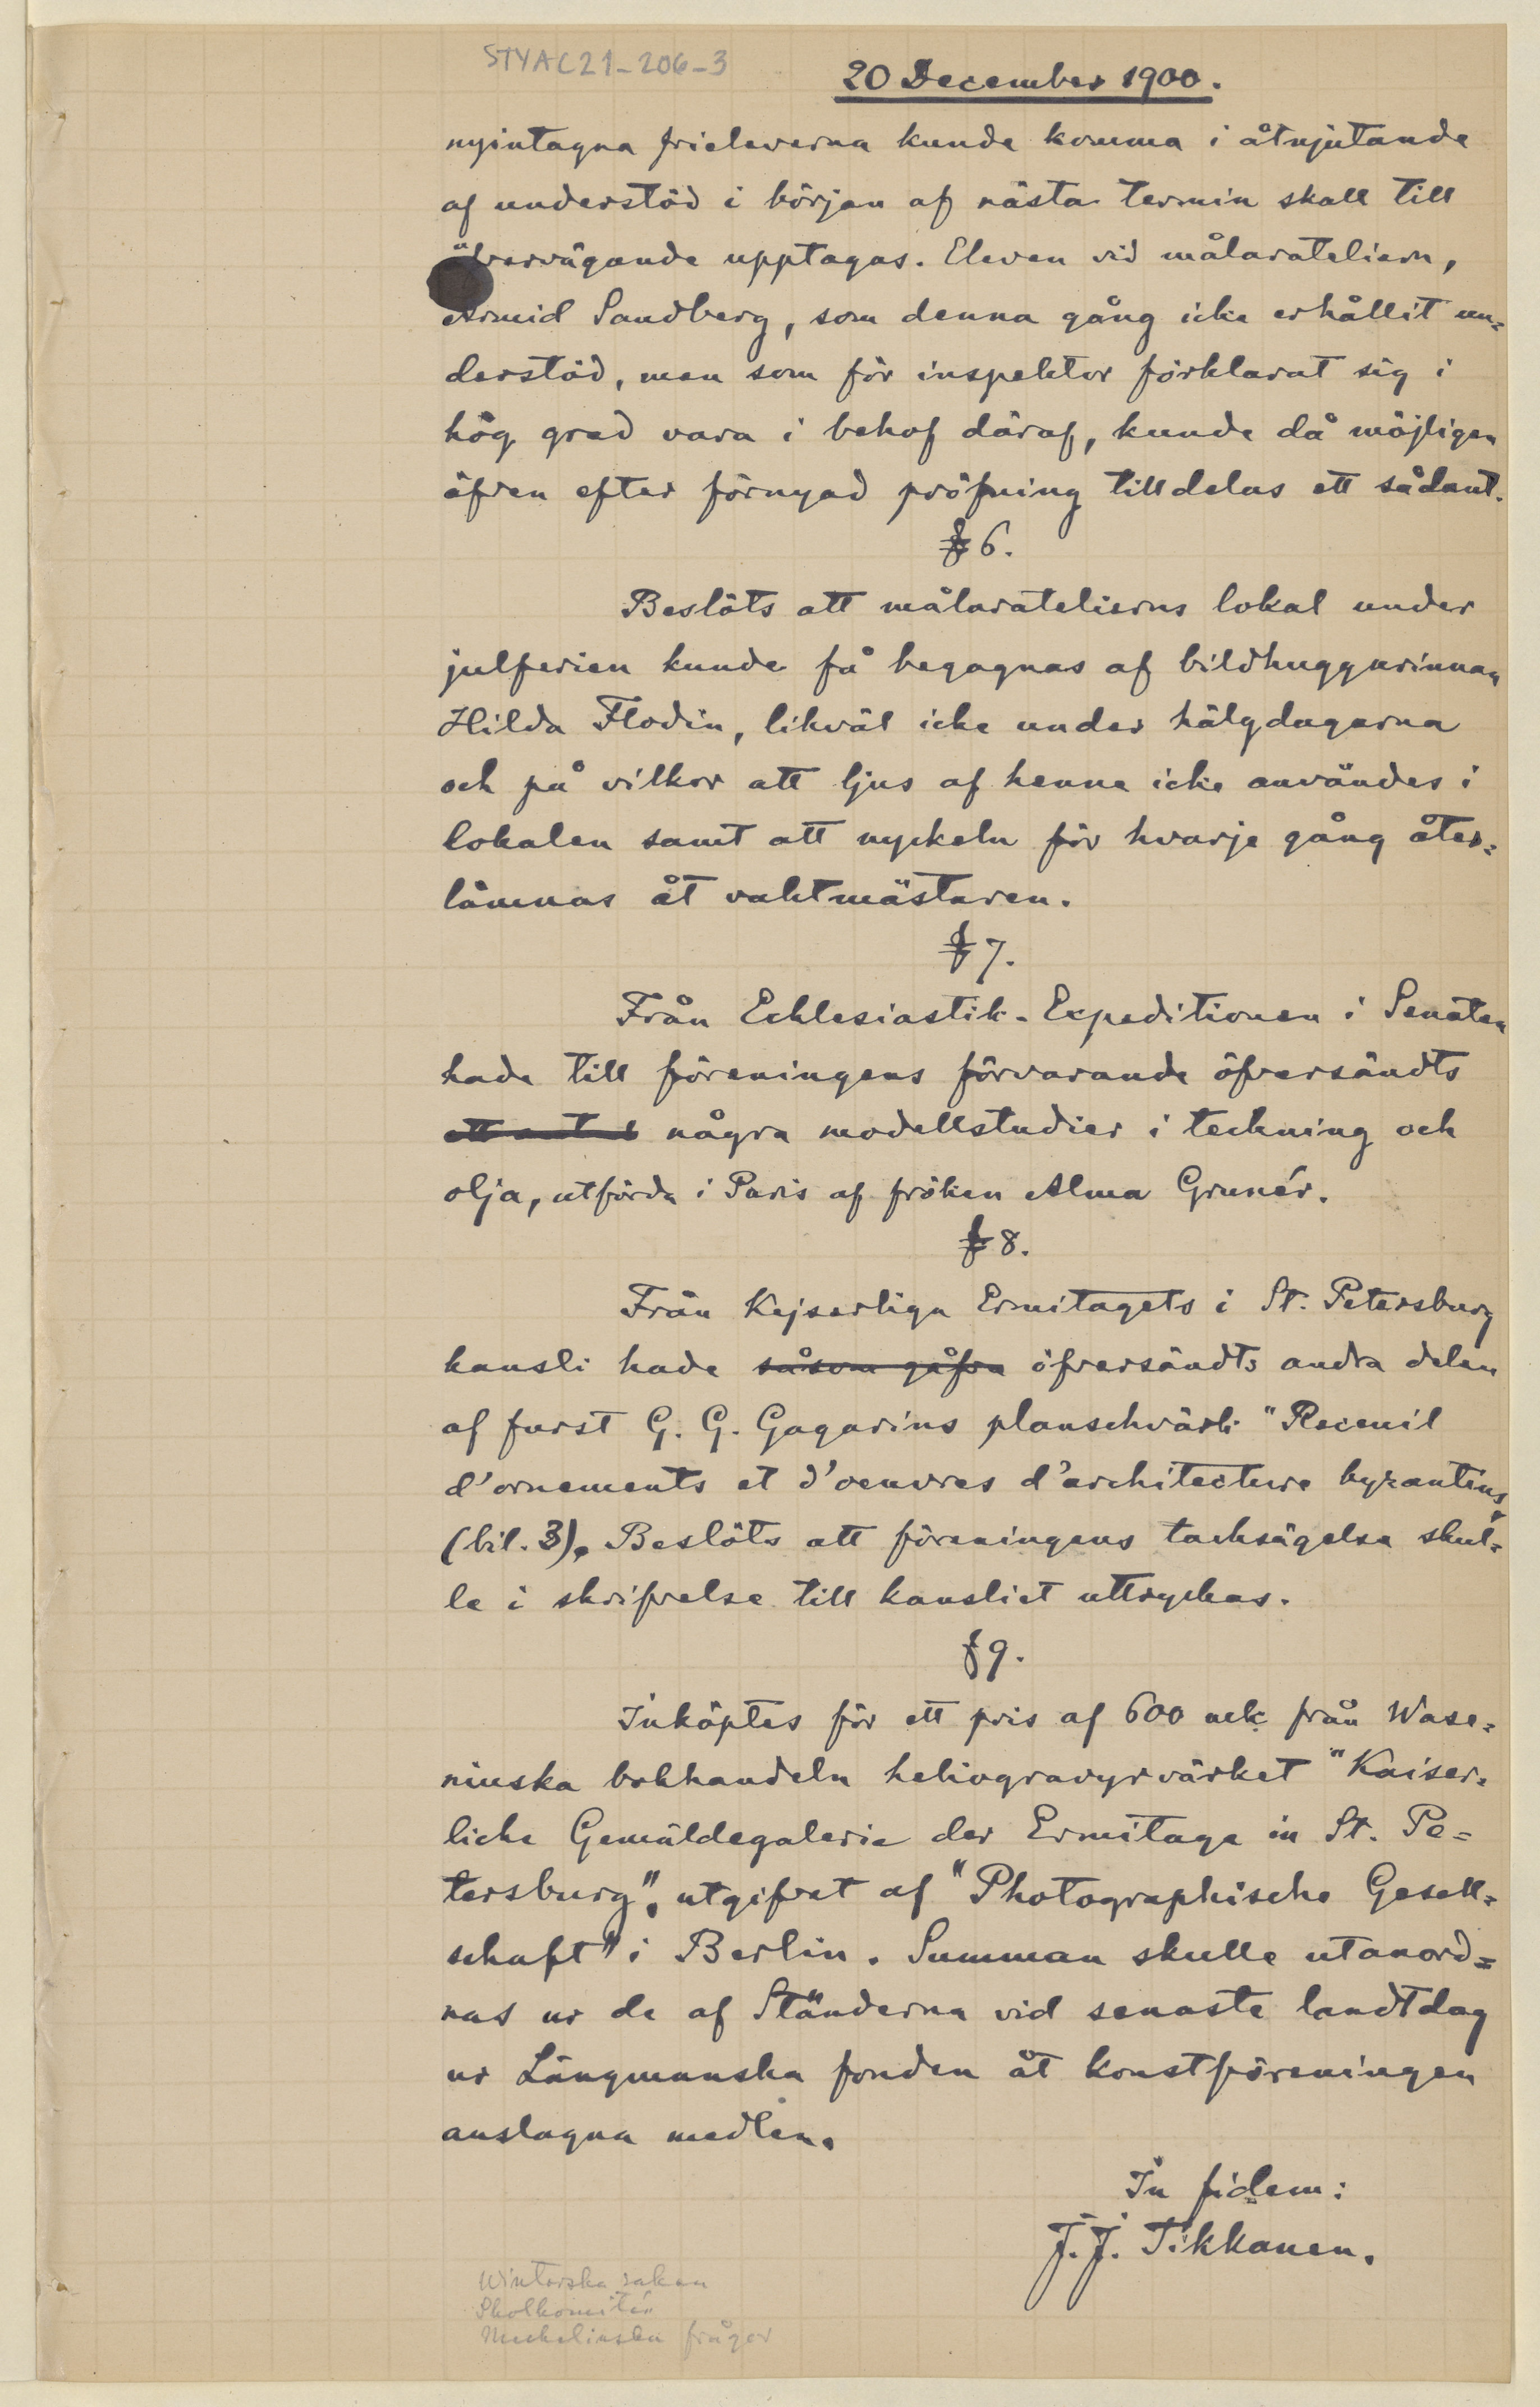 STYAC21-206-3
20 December 1900.
nyintagna frieleverna kunde komma i åtnjutande
af understöd i början af nästa termin skall till
öfvervägande upptagas. Eleven vid målarateliern,
Armid Sandberg, som denna gång icke erhållit un=
derstöd, men som för inspektor förklarat sig i
hög grad vara i behof däraf, kunde då möjligen
äfven efter förnyad pröfning tilldelas ett sådant.
§ 6.
Beslöts att målaratelierns lokal under
julferien kunde få begagnas af bildhuggarinnan
Hilda Flodin, likväl icke under hälgdagarna
och på vilkor att ljus af henne icke användes i
lokalen samt att nyckeln för hvarje gång åter=
lämnas åt vaktmästaren.
§ 7.
Från Ecklesiastik-Expeditionen i Senaten
hade till föreningens förvarande öfversändts
ett antal några modellstudier i teckning och
olja, utförda i Paris af fröken Alma Grunér.
§ 8.
Från Kejserliga Ermitagets i St. Petersburg
kansli hade såsom gåfva öfversändts andra delen
af furst G. G. Gagarins planschvärk "Recueil
d'ornements et d'oeuvres d'architecture byzantins"
(bil. 3). Beslöts att föreningens tacksägelse skul=
le i skrifvelse till kansliet uttryckas.
§ 9.
Inköptes för ett pris af 600 mk från Wase=
niuska bokhandeln heliogravyrvärket "Kaiser=
liche Gemäldegalerie der Ermitage in St. Pe=
tersburg", utgifvet af "Photographische Gesell=
schaft" i Berlin. Summan skulle utanord=
nas ur de af Ständerna vid senaste landtdag
ur Längmanska fonden åt konstföreningen
anslagna medlen.
In fidem:
J. J. Tikkanen.
Winterska saken
Skolkomitén
Mechelinska frågor